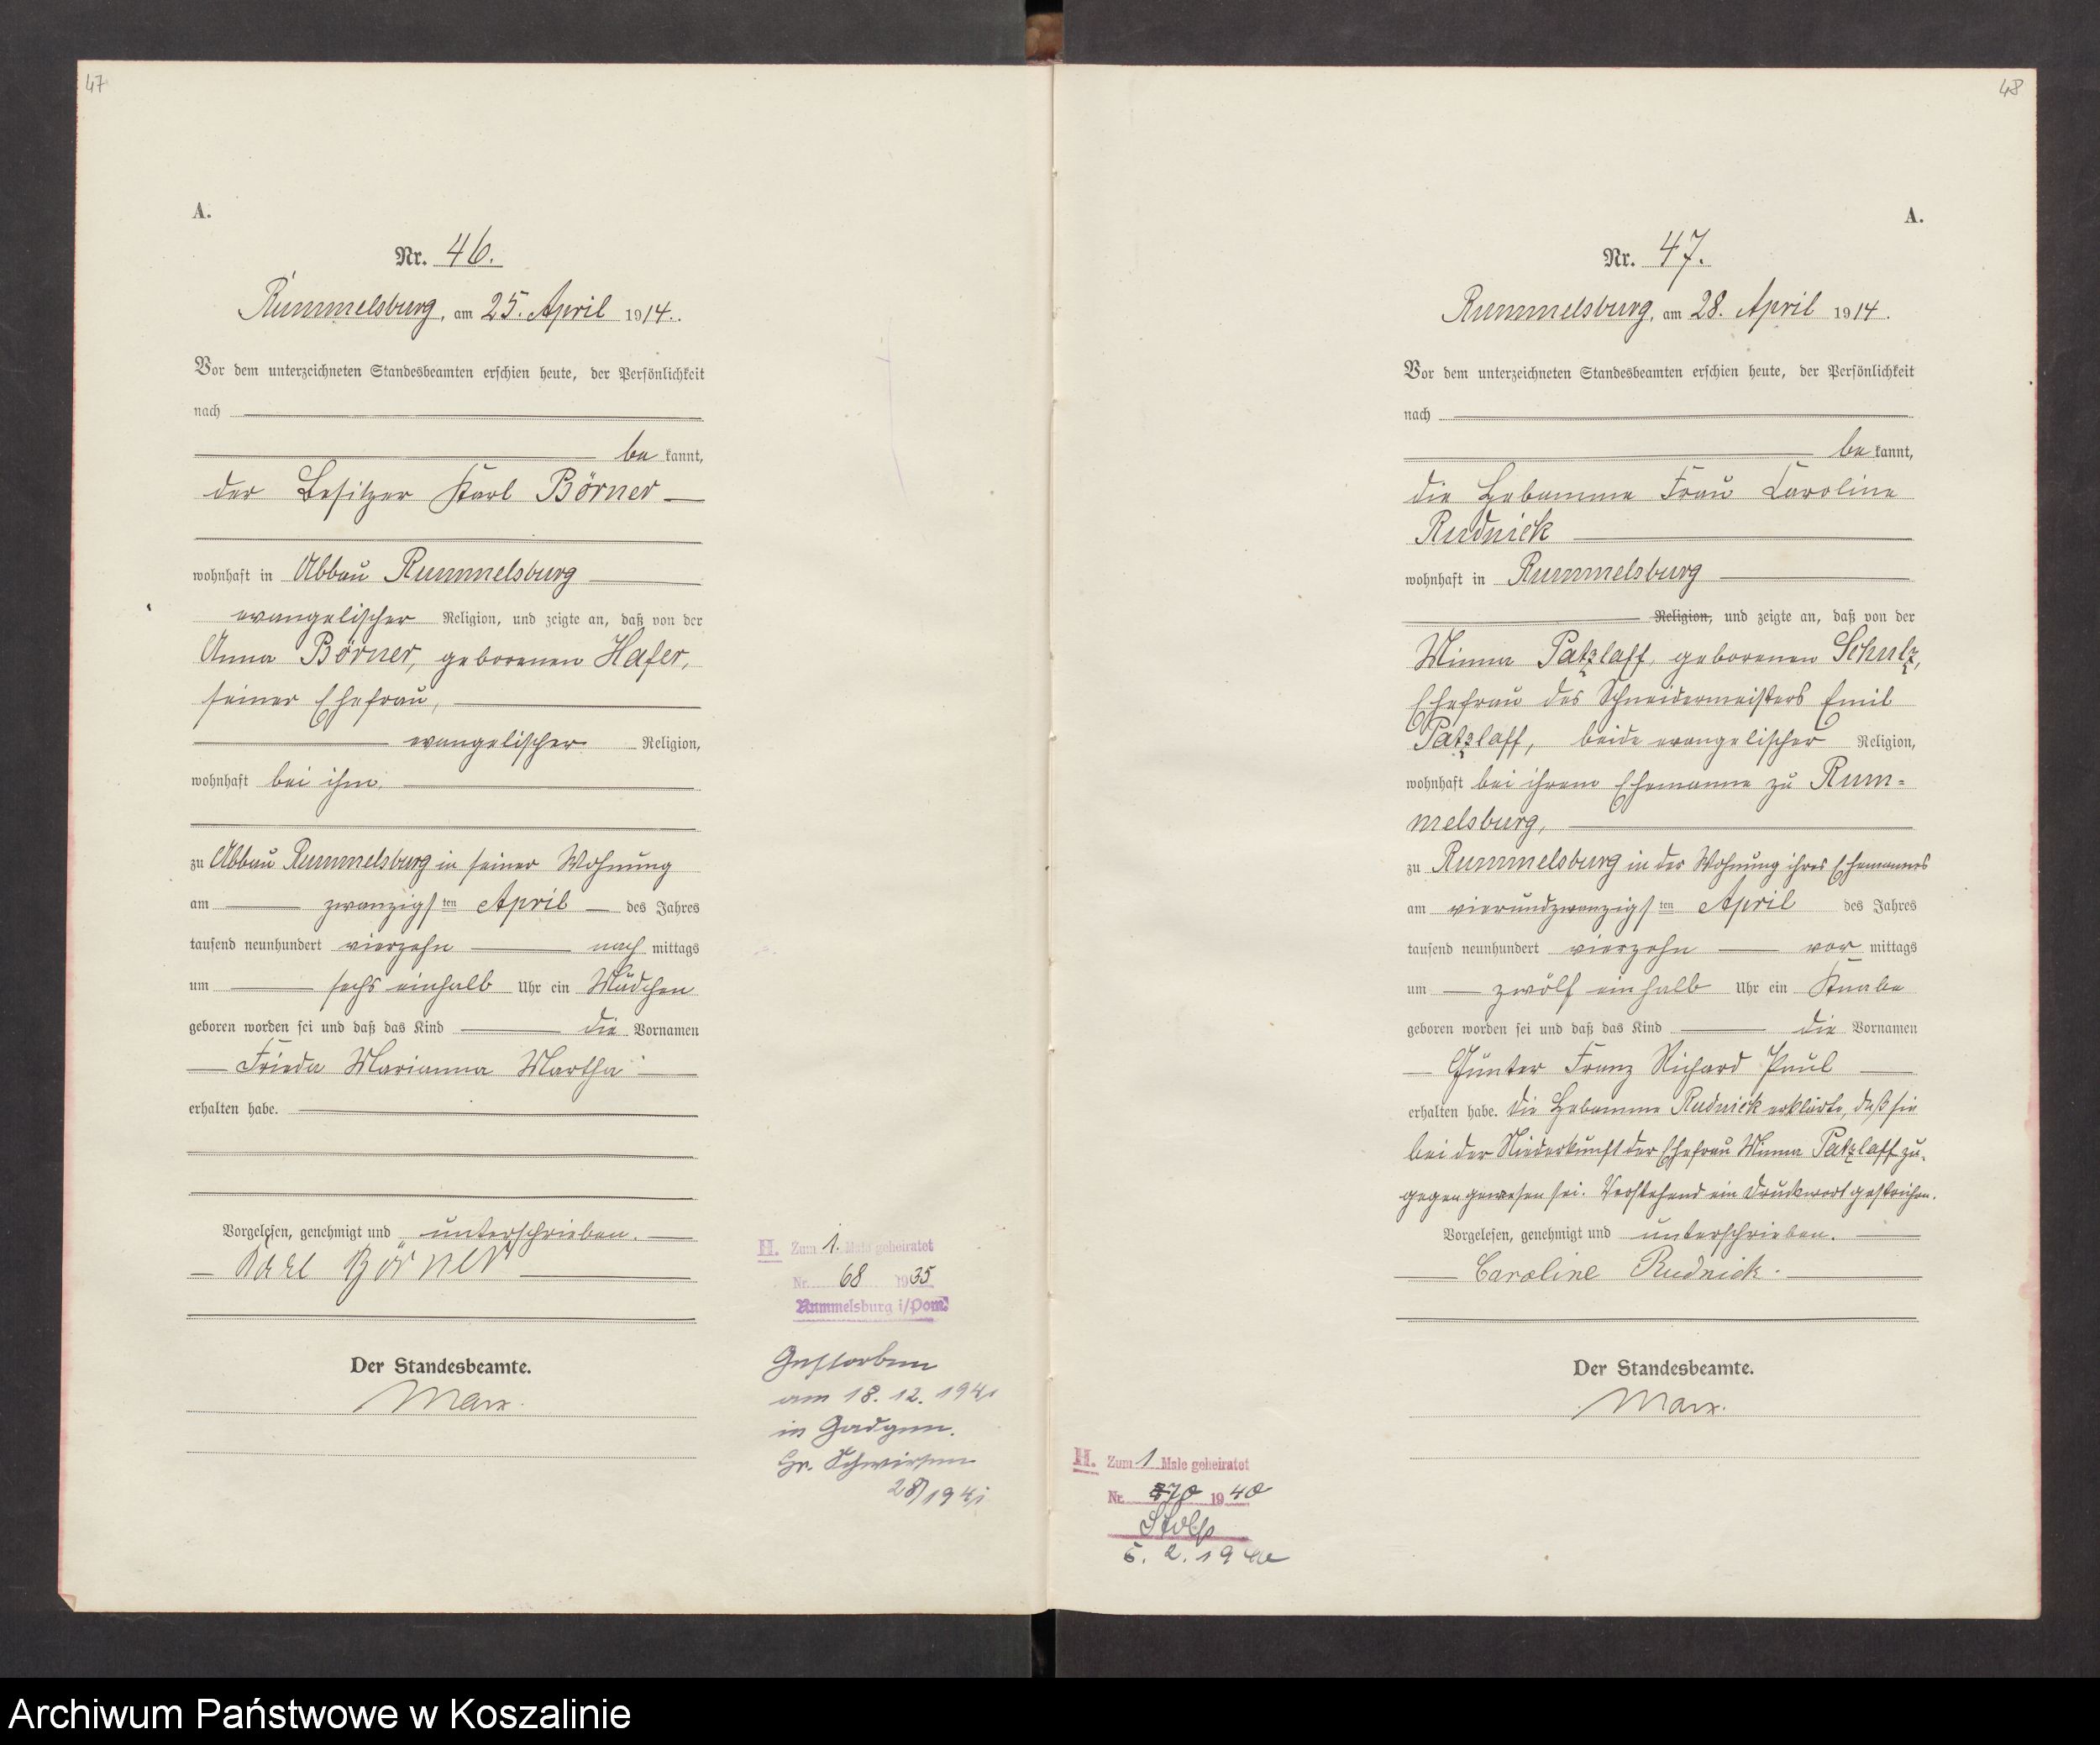 47
A.
Nr. 46.
Rummelsburg, am 25. April 1914.
Vor dem unterzeichneten Standesbeamten erschien heute, der Persönlichkeit
nach
be kannt,
der Besitzer Karl Börner
wohnhaft in Abbau Rummelsburg
evangelischer Religion, und zeigte an, daß von der
Anna Börner, geborenen Hafer,
seiner Ehefrau,
evangelischer Religion,
wohnhaft bei ihm,
zu Abbau Rummelsburg in seiner Wohnung
am zwanzigsten April des Jahres
tausend neunhundert vierzehn nach mittags
um sechs einhalb Uhr ein Mädchen
geboren worden sei und daß das Kind die Vornamen
Frieda Marianna Martha
erhalten habe.
Vorgelesen, genehmigt und unterschrieben.
Karl Börner
Der Standesbeamte.
Marx.
H. Zum 1. Male geheiratet
Nr. 68 1935
Rummelsburg i/Pom.
Gestorben
am 18. 12. 1941
in
Gr. Schwirsen
28/1941
48
A.
Nr. 47.
Rummelsburg, am 28. April 1914.
Vor dem unterzeichneten Standesbeamten erschien heute, der Persönlichkeit
nach
be kannt,
die Hebamme Frau Caroline
Rudnick
wohnhaft in Rummelsburg
Religion, und zeigte an, daß von der
Minna Patzlaff, geborenen Schulz,
Ehefrau des Schneidermeisters Emil
Patzlaff, beide evangelischer Religion,
wohnhaft bei ihrem Ehemanne zu Rum=
melsburg,
zu Rummelsburg in der Wohnung ihres Ehemannes
am vierundzwanzigsten April des Jahres
tausend neunhundert vierzehn vor mittags
um zwölf einhalb Uhr ein Knabe
geboren worden sei und daß das Kind die Vornamen
Günter Franz Richard Paul
erhalten habe. Die Hebamme Rudnick erklärte, daß sie
bei der Niederkunft der Ehefrau Minna Patzlaff zu-
gegen gewesen sei. Vorstehend ein Druckwort gestrichen.
Vorgelesen, genehmigt und unterschrieben.
Caroline Rudnick.
Der Standesbeamte.
Marx.
H. Zum 1 Male geheiratet
Nr. 70 1940
Stolp
5. 2. 1940
Archiwum Państwowe w Koszalinie